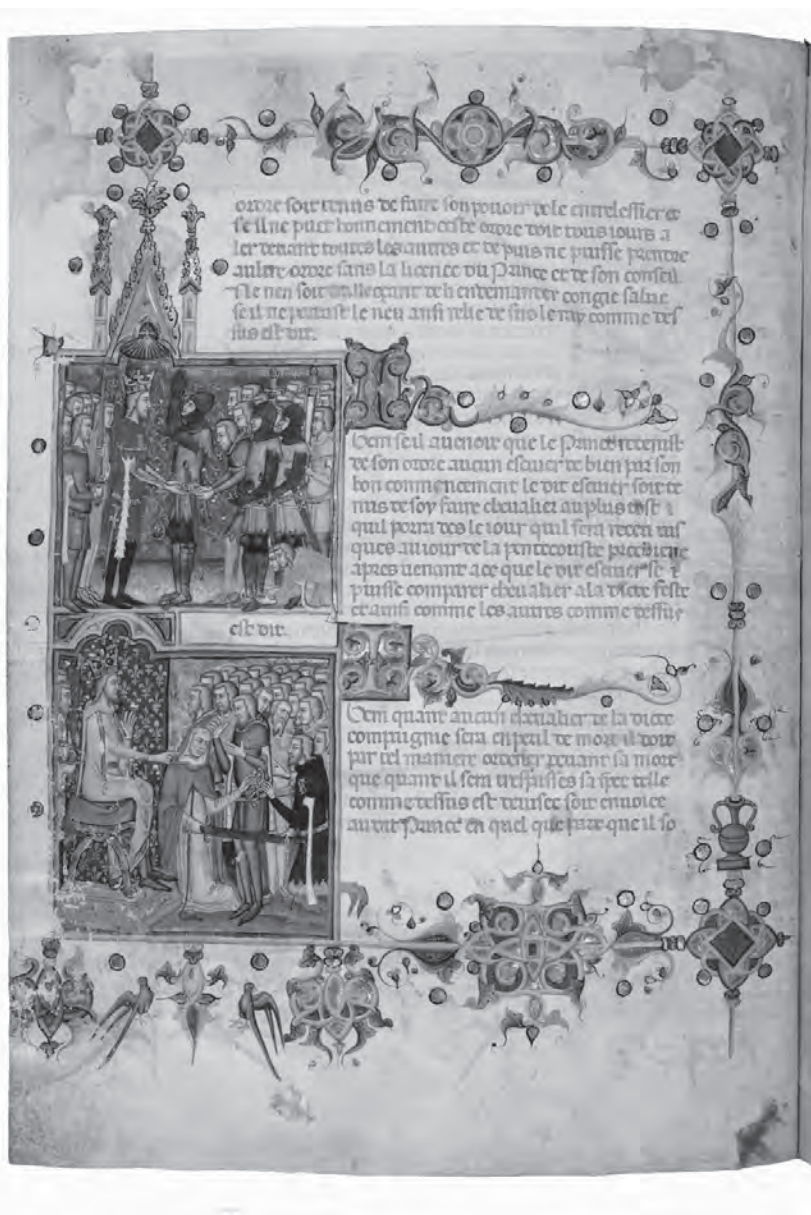 ordre soit tenus de faire son pouoir de le entrelessier et
se il ne puet bonnement ceste ordre doit tous iours a
ler deuant toutes les autres et de puis ne puisse prendre
aultre ordre sans la licence du Prince et de son conseil
Ne nen soit demander congie salue
se il ne portast le neu ansi relie de sus le ray comme des
sus est dit.
Item se il auenoit que le Prince receuist
de son ordre aucun escuier de bien par son
bon commencement le dit escuier soit te
nus de soy faire cheualier au plus tost
quil porra des le iour quil sera receu ius
ques au iour de la pentecouste
apres uenant a ce que le dit escuier se
puisse comparer cheualier a la dicte feste
et ansi comme les autres comme dessus
est dit.
Item quant aucun cheualier de la dicte
compaignie sera en peril de mort il doit
par tel maniere ordener deuant sa mort
que quant il sera trespasses sa spee telle
comme dessus est deuisee soit enuoiee
au dit Prince en quel que part que il so